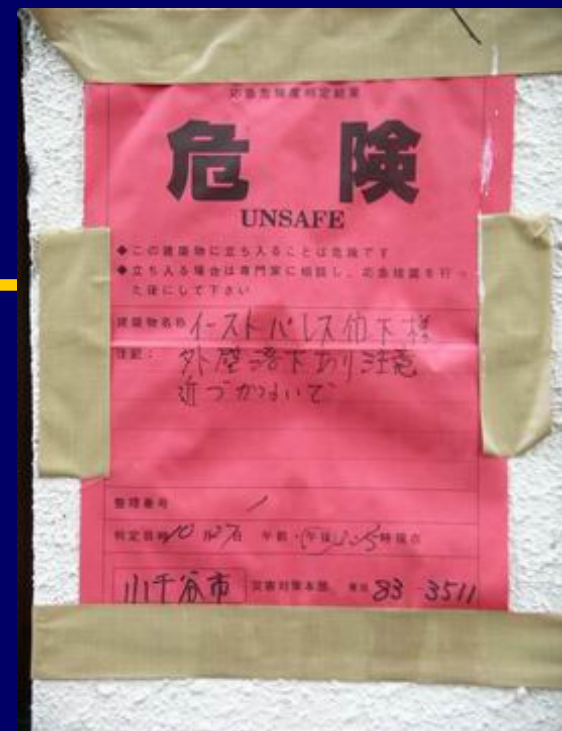 応急危険度判定結果
危険
UNSAFE
◆この建築物に立ち入ることは危険です
◆立ち入る場合は専門家に相談し、応急措置を行っ
た後にして下さい
建築物名称 イーストパレス 様
注記： 外壁落下あり注意
近づかないで
整理番号 1
判定日時 10月27日 午前・午後 時現在
小千谷市 災害対策本部 電話 83-3511